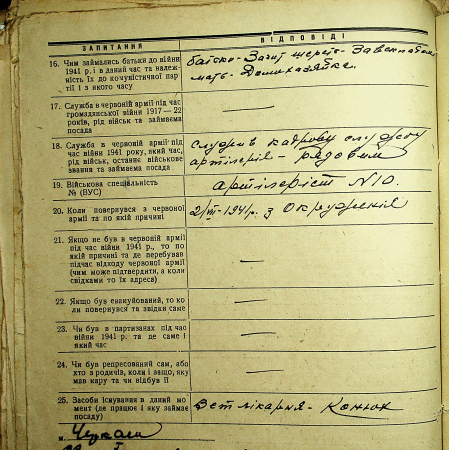 ЗАПИТАННЯ
ВІДПОВІДІ
16. Чим займались батьки до війни
1941 р. і в даний час та належ-
ність їх до комуністичної пар-
тії і з якого часу
батько-
мать- Домохазяйка.
17. Служба в червоній армії під час
громадянської війни 1917—22
років, рід військ та займаєма
посада
—
18. Служба в червоній армії під
час війни 1941 року, який час,
рід військ, останнє військове
звання та займаєма посада
служив кадрову службу
артілерія - рядовим
19. Військова спеціальність
№ (ВУС)
артілеріст N10.
20. Коли повернувся з червоної
армії та по якій причині
1941р. з Окруженія
21. Якщо не був в червоній армії
під час війни 1941 р., то по
якій причині та де перебував
підчас відходу червоної армії
(чим може підтвердити, з коли
свідками то їх адреса)
—
22. Якщо був евакуйований, то ко-
ли повернувся та звідки саме
—
23. Чи був в партизанах під час
війни 1941 р. та де саме і
який час
—
24. Чи був репресований сам, або
хто з родичів, коли і защо, яку
мав кару та чи відбув її
—
25. Засоби існування в даний мо-
мент (де працює і яку займає
посаду)
Вет лікарня - Конюх
м. Черкаси